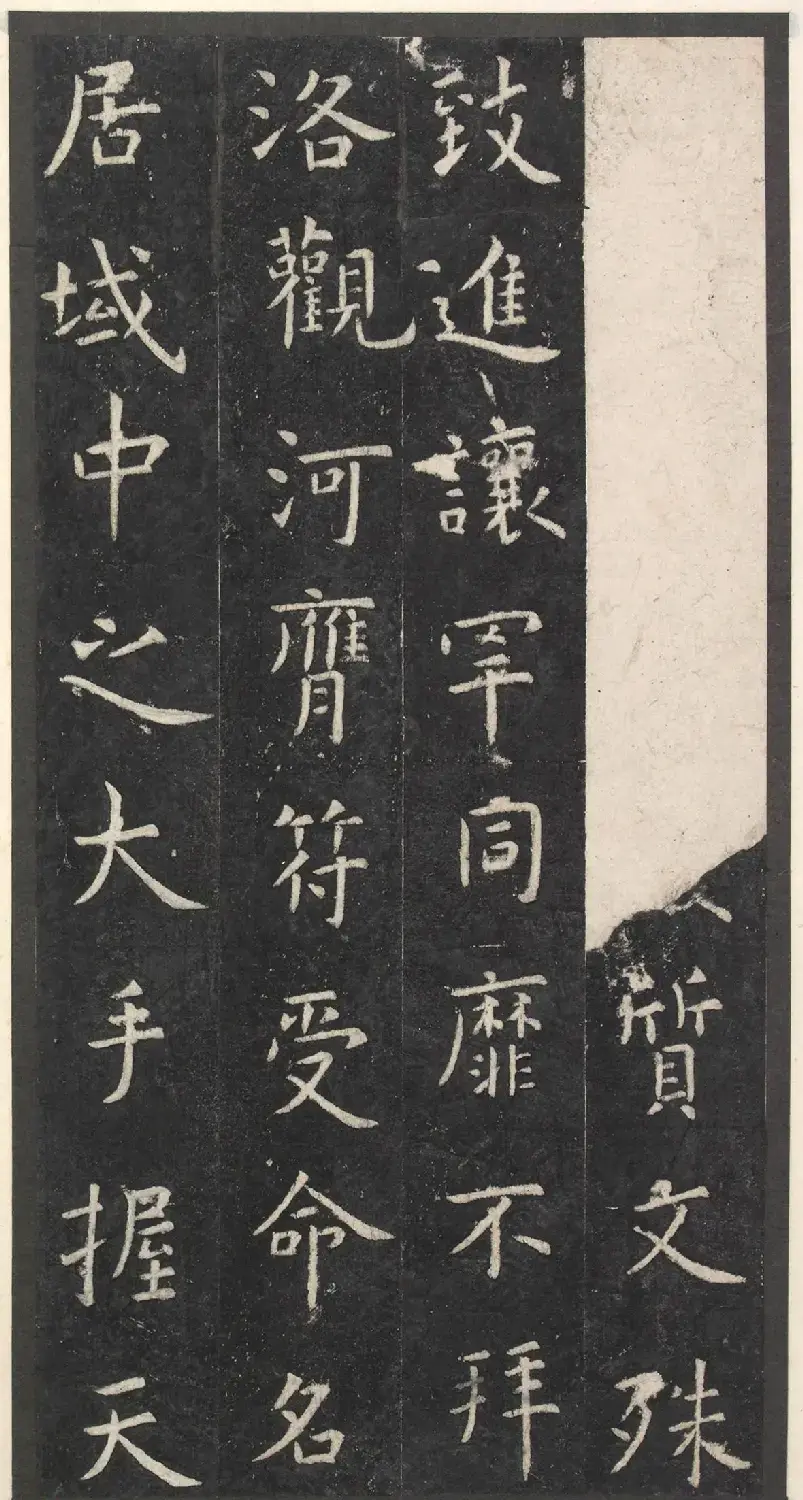 質文殊
致進讓罕同靡不拜
洛觀河膺符受命名
居域中之大手握天